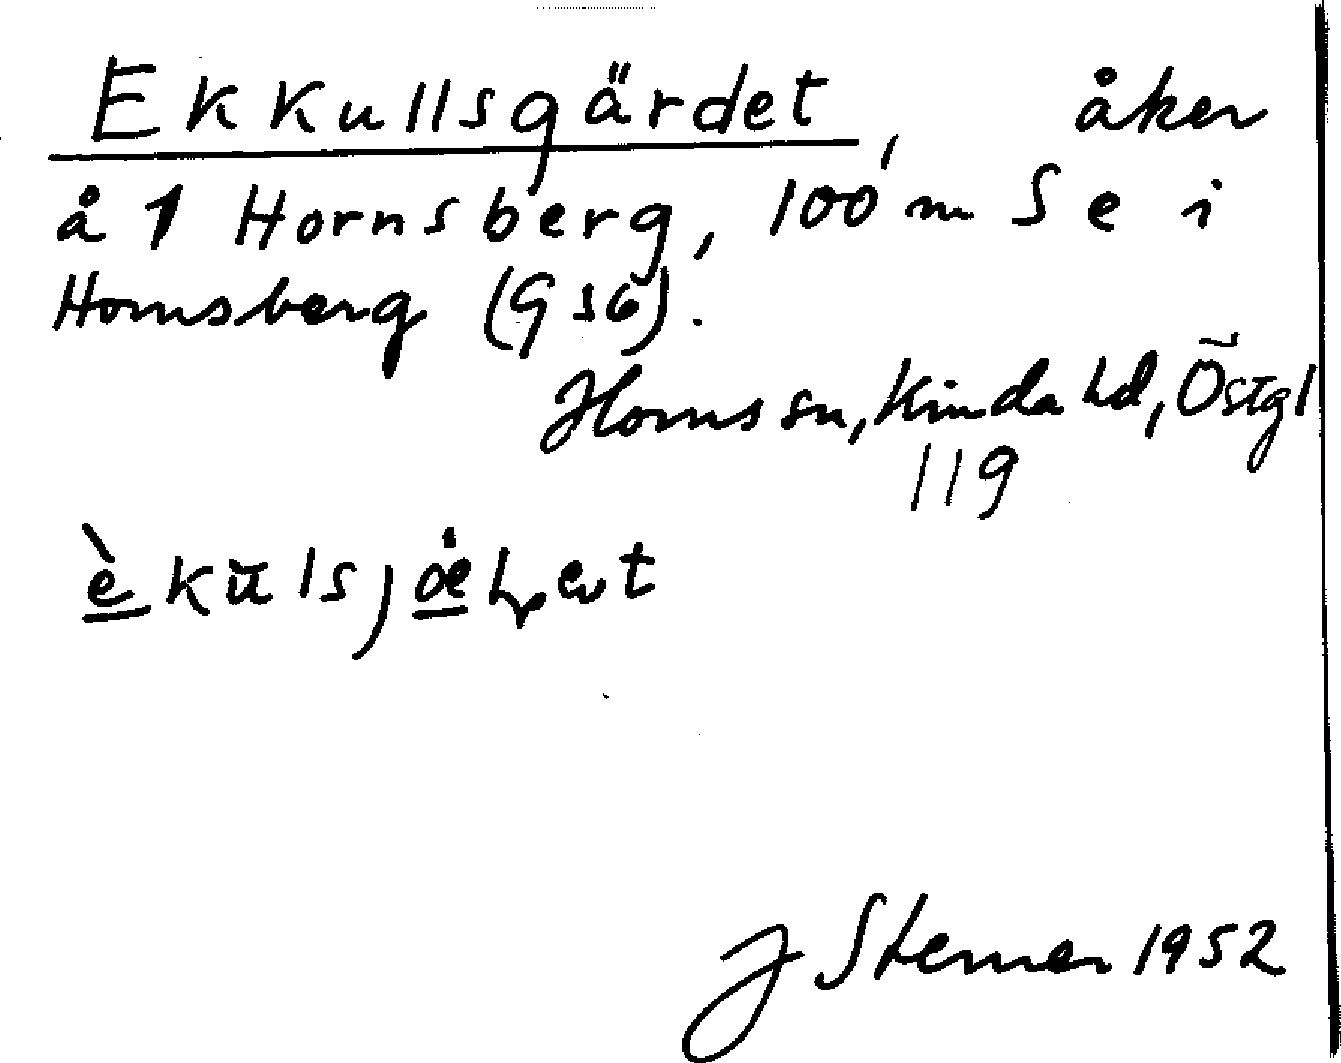 Ekkullsgärdet, åker
å 1 Hornsberg, 100 m S e i
Hornsberg (9 s6).
Horns sn, Kinda hd, Östgl
119
J Sterner 1952